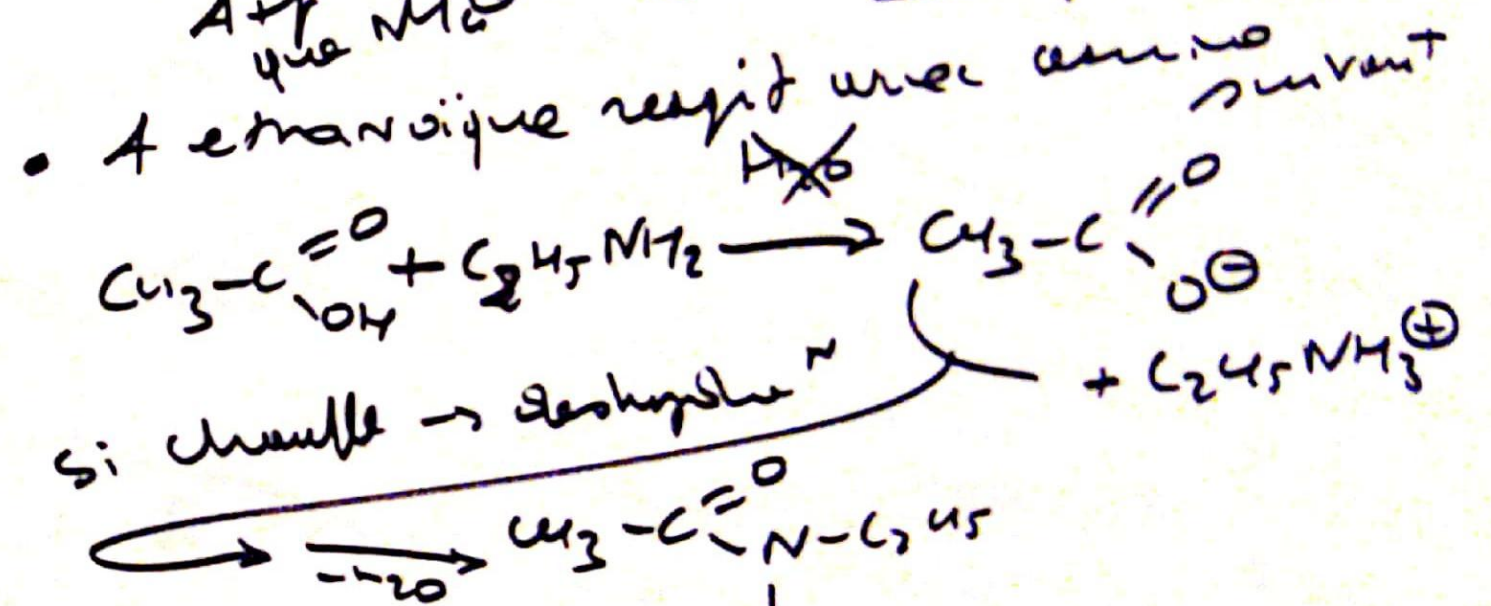 que
• A ethanoïque reagit avec amine suivant
H2O
CH3-C=O OH + C2H5NH2 → CH3-C=O O⊖
+ C2H5NH3⊕
Si chauffe → deshydra N
→ -H2O CH3-C=O N-C2H5